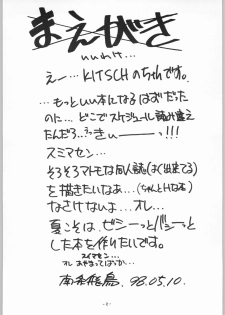 まえがき
いいわけ...
えー…KITSCHのちゃです。
…もっといい本になるはずだった
のに…どこでスケジュール読み違え
たんだろ…?っきぃーーーっ!!!
スミマセン
そろそろマトモな同人誌(よく出来てる)
を描きたいなあ…(ちゃんとHな本)
なさけないよ…オレ…
夏こそは、ビシーッとバシーッと
した本を作りたいです。
スイマセン…
オレあやまってばっか…
98.05.10.